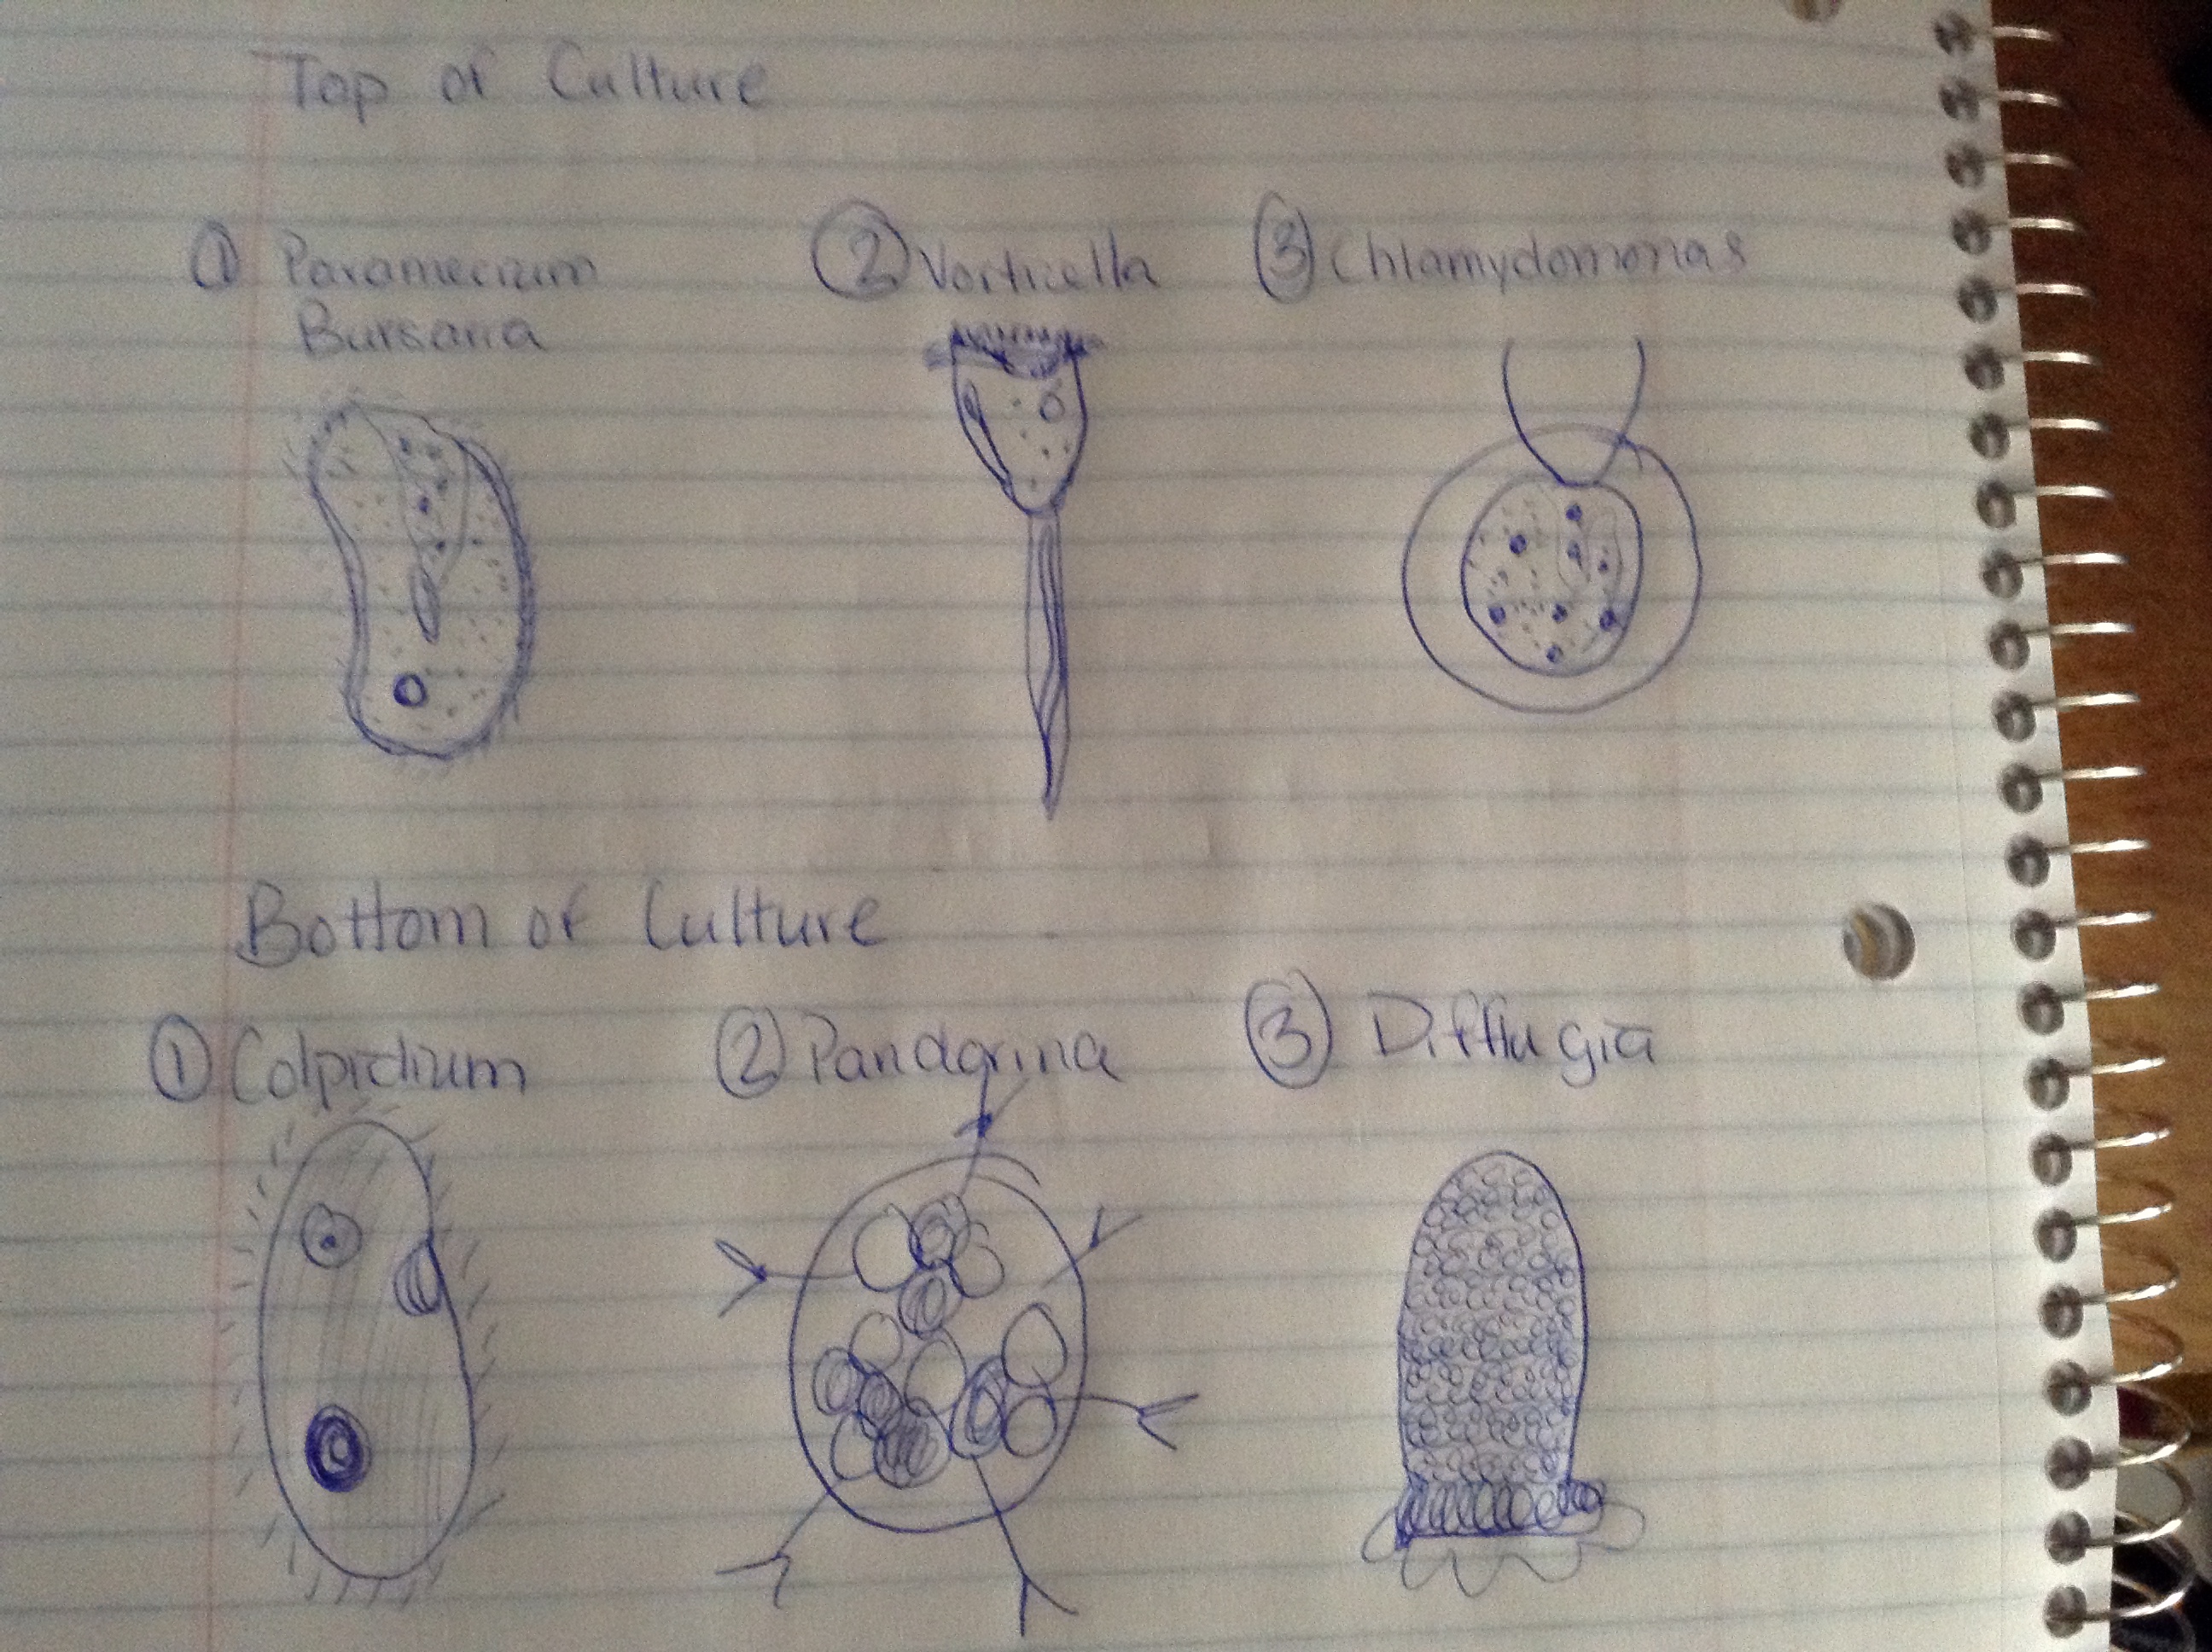 Top of Culture
① Paramecium ② Vorticella ③ Chlamydomonas
Bursaria
Bottom of Culture
① Colpidium ② Pandorina ③ Difflugia